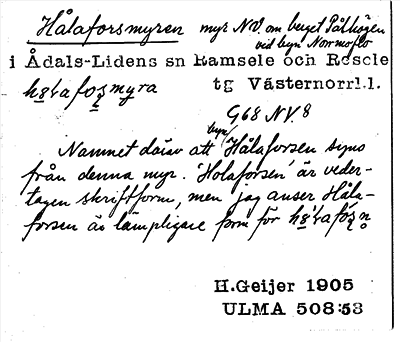 Hålaforsmyren myr NV. om berget Påhkögen
vid byn Norrmofio
i Ådals-Lidens sn Ramsele och Resele
hålaforsmyra tg Västernorrl.l.
G68 NV 8
Namnet därav att byn/ Hålaforsen syns
från denna myr. 'Holaforsen' är veder-
tagen skriftform, men jag anser Håla-
forsen är lämpligare form för
H.Geijer 1905
ULMA 508:53